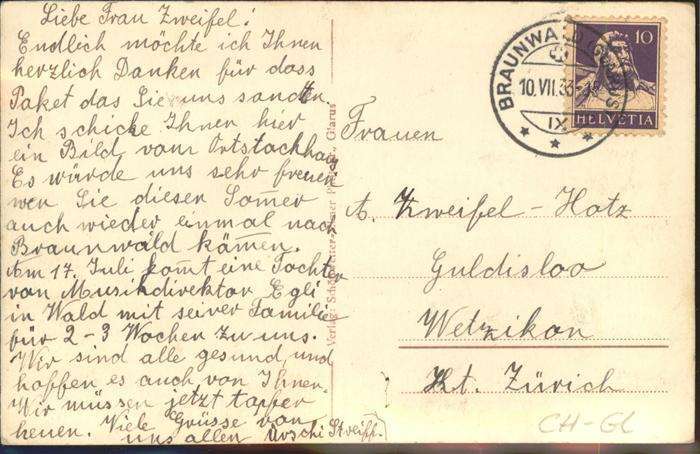 Liebe Frau Zweifel!
Endlich möchte ich Ihnen
herzlich Danken für dass
Paket das Sie uns sandten.
Ich schicke Ihnen hier
ein Bild vom Ortstockhaus
Es würde uns sehr freuen
wen Sie diesen Somer
auch wieder einmal nach
Braunwald kämen.
Am 17. Juli komt eine Tochter
von Musikdirektor Egli
in Wald mit seiner Familie
für 2-3 Wochen zu uns.
Wir sind alle gesund, und
hoffen es auch von Ihnen.
Wir müssen jetzt tapfer
heuen. Viele Grüsse von
uns allen Streiff.
Verlag Glarus
BRAUNWALD (GLARUS)
10.VII.33
IX
10
HELVETIA
Frauen
A. Zweifel-Hotz
Guldisloo
Wetzikon
Kt. Zürich
CH-GL